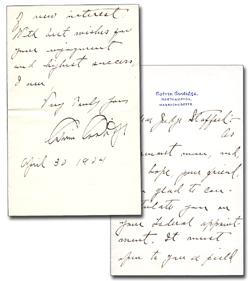 Calvin Coolidge,
Northampton,
Massachusetts
Dear Judge Stafford:
As
man, and
I hope, your friend,
I am glad to con-
gratulate you on
your Federal appoint-
ment. It must
open to you a field
of new interest.
With best wishes for
your enjoyment
and highest success,
I am
Very truly yours
Calvin Coolidge
April 30 1924